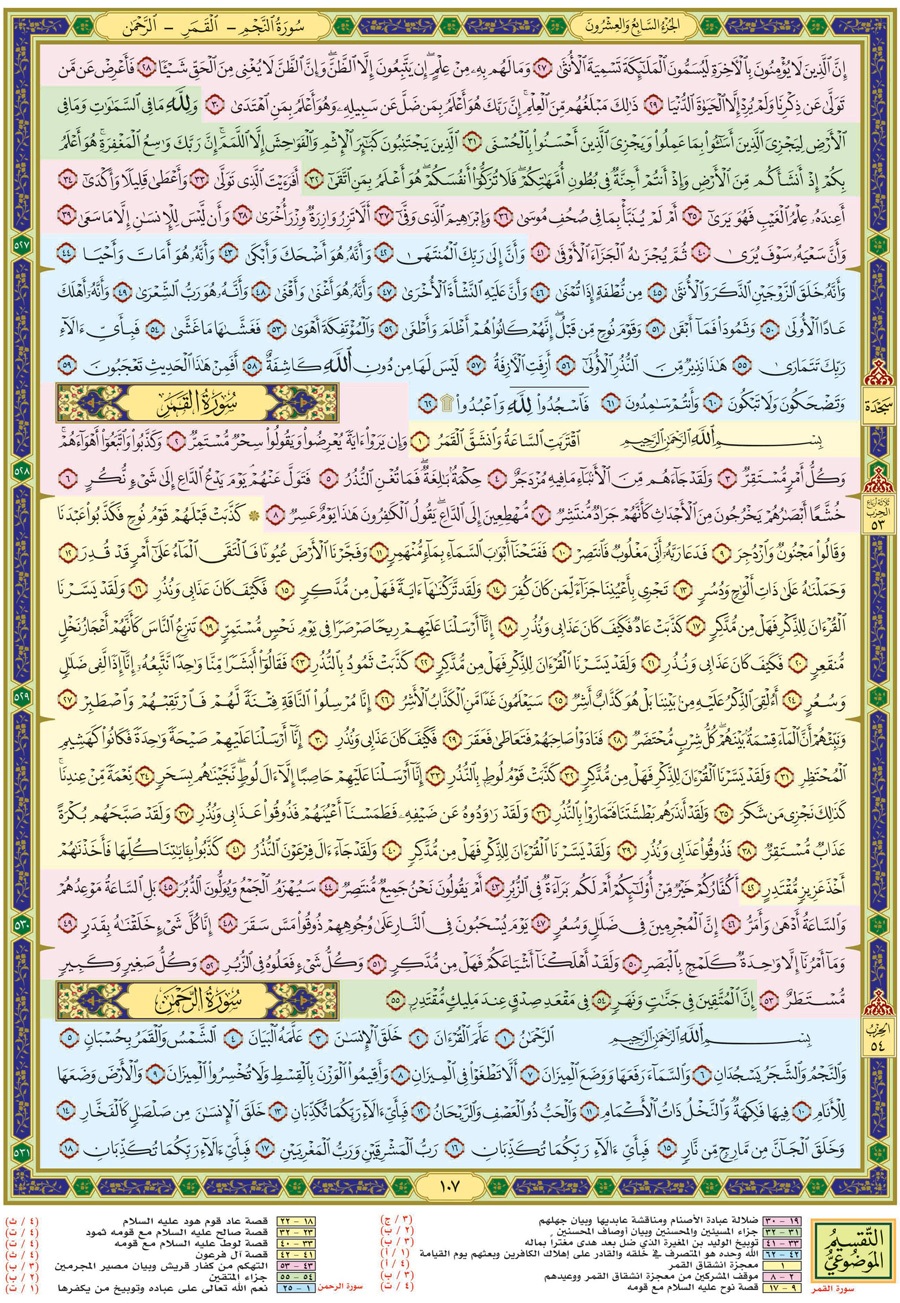 الجُزءُ السَّابِعُ وَالعِشْرُونَ
سُورَةُ النَّجْمِ – القَمَرِ – الرَّحْمٰن
إِنَّ ٱلَّذِينَ لَا يُؤْمِنُونَ بِٱلْأَخِرَةِ لَيُسَمُّونَ ٱلْمَلَٰٓئِكَةَ تَسْمِيَةَ ٱلْأُنثَىٰ ٢٧ وَمَا لَهُم بِهِۦ مِنْ عِلْمٍ ۖ إِن يَتَّبِعُونَ إِلَّا ٱلظَّنَّ ۖ وَإِنَّ ٱلظَّنَّ لَا يُغْنِى مِنَ ٱلْحَقِّ شَيْـًٔا ٢٨ فَأَعْرِضْ عَن مَّن
تَوَلَّىٰ عَن ذِكْرِنَا وَلَمْ يُرِدْ إِلَّا ٱلْحَيَوٰةَ ٱلدُّنْيَا ٢٩ ذَٰلِكَ مَبْلَغُهُم مِّنَ ٱلْعِلْمِ ۚ إِنَّ رَبَّكَ هُوَ أَعْلَمُ بِمَن ضَلَّ عَن سَبِيلِهِۦ وَهُوَ أَعْلَمُ بِمَنِ ٱهْتَدَىٰ ٣٠ وَلِلَّهِ مَا فِى ٱلسَّمَٰوَٰتِ وَمَا فِى
ٱلْأَرْضِ لِيَجْزِىَ ٱلَّذِينَ أَسَٰٓـُٔوا۟ بِمَا عَمِلُوا۟ وَيَجْزِىَ ٱلَّذِينَ أَحْسَنُوا۟ بِٱلْحُسْنَى ٣١ ٱلَّذِينَ يَجْتَنِبُونَ كَبَٰٓئِرَ ٱلْإِثْمِ وَٱلْفَوَٰحِشَ إِلَّا ٱللَّمَمَ ۚ إِنَّ رَبَّكَ وَٰسِعُ ٱلْمَغْفِرَةِ ۚ هُوَ أَعْلَمُ
بِكُمْ إِذْ أَنشَأَكُم مِّنَ ٱلْأَرْضِ وَإِذْ أَنتُمْ أَجِنَّةٌ فِى بُطُونِ أُمَّهَٰتِكُمْ ۖ فَلَا تُزَكُّوٓا۟ أَنفُسَكُمْ ۖ هُوَ أَعْلَمُ بِمَنِ ٱتَّقَىٰٓ ٣٢ أَفَرَءَيْتَ ٱلَّذِى تَوَلَّىٰ ٣٣ وَأَعْطَىٰ قَلِيلًا وَأَكْدَىٰٓ ٣٤
أَعِندَهُۥ عِلْمُ ٱلْغَيْبِ فَهُوَ يَرَىٰٓ ٣٥ أَمْ لَمْ يُنَبَّأْ بِمَا فِى صُحُفِ مُوسَىٰ ٣٦ وَإِبْرَٰهِيمَ ٱلَّذِى وَفَّىٰٓ ٣٧ أَلَّا تَزِرُ وَازِرَةٌ وِزْرَ أُخْرَىٰ ٣٨ وَأَن لَّيْسَ لِلْإِنسَٰنِ إِلَّا مَا سَعَىٰ ٣٩
وَأَنَّ سَعْيَهُۥ سَوْفَ يُرَىٰ ٤٠ ثُمَّ يُجْزَىٰهُ ٱلْجَزَآءَ ٱلْأَوْفَىٰ ٤١ وَأَنَّ إِلَىٰ رَبِّكَ ٱلْمُنتَهَىٰ ٤٢ وَأَنَّهُۥ هُوَ أَضْحَكَ وَأَبْكَىٰ ٤٣ وَأَنَّهُۥ هُوَ أَمَاتَ وَأَحْيَا ٤٤
٥٢٧
وَأَنَّهُۥ خَلَقَ ٱلزَّوْجَيْنِ ٱلذَّكَرَ وَٱلْأُنثَىٰ ٤٥ مِن نُّطْفَةٍ إِذَا تُمْنَىٰ ٤٦ وَأَنَّ عَلَيْهِ ٱلنَّشْأَةَ ٱلْأُخْرَىٰ ٤٧ وَأَنَّهُۥ هُوَ أَغْنَىٰ وَأَقْنَىٰ ٤٨ وَأَنَّهُۥ هُوَ رَبُّ ٱلشِّعْرَىٰ ٤٩ وَأَنَّهُۥٓ أَهْلَكَ
عَادًا ٱلْأُولَىٰ ٥٠ وَثَمُودَا۟ فَمَآ أَبْقَىٰ ٥١ وَقَوْمَ نُوحٍ مِّن قَبْلُ ۖ إِنَّهُمْ كَانُوا۟ هُمْ أَظْلَمَ وَأَطْغَىٰ ٥٢ وَٱلْمُؤْتَفِكَةَ أَهْوَىٰ ٥٣ فَغَشَّىٰهَا مَا غَشَّىٰ ٥٤ فَبِأَىِّ ءَالَآءِ
رَبِّكَ تَتَمَارَىٰ ٥٥ هَٰذَا نَذِيرٌ مِّنَ ٱلنُّذُرِ ٱلْأُولَىٰٓ ٥٦ أَزِفَتِ ٱلْأَزِفَةُ ٥٧ لَيْسَ لَهَا مِن دُونِ ٱللَّهِ كَاشِفَةٌ ٥٨ أَفَمِنْ هَٰذَا ٱلْحَدِيثِ تَعْجَبُونَ ٥٩
وَتَضْحَكُونَ وَلَا تَبْكُونَ ٦٠ وَأَنتُمْ سَٰمِدُونَ ٦١ فَٱسْجُدُوا۟ لِلَّهِ وَٱعْبُدُوا۟ ۩ ٦٢
سَجْدَة
سُورَةُ القَمَرِ
بِسْمِ ٱللَّهِ ٱلرَّحْمَٰنِ ٱلرَّحِيمِ ٱقْتَرَبَتِ ٱلسَّاعَةُ وَٱنشَقَّ ٱلْقَمَرُ ١ وَإِن يَرَوْا۟ ءَايَةً يُعْرِضُوا۟ وَيَقُولُوا۟ سِحْرٌ مُّسْتَمِرٌّ ٢ وَكَذَّبُوا۟ وَٱتَّبَعُوٓا۟ أَهْوَآءَهُمْ ۚ
٥٢٨
وَكُلُّ أَمْرٍ مُّسْتَقِرٌّ ٣ وَلَقَدْ جَآءَهُم مِّنَ ٱلْأَنۢبَآءِ مَا فِيهِ مُزْدَجَرٌ ٤ حِكْمَةٌۢ بَٰلِغَةٌ ۖ فَمَا تُغْنِ ٱلنُّذُرُ ٥ فَتَوَلَّ عَنْهُمْ ۘ يَوْمَ يَدْعُ ٱلدَّاعِ إِلَىٰ شَىْءٍ نُّكُرٍ ٦
ثلاثة أرباع الحزب ٥٣
خُشَّعًا أَبْصَٰرُهُمْ يَخْرُجُونَ مِنَ ٱلْأَجْدَاثِ كَأَنَّهُمْ جَرَادٌ مُّنتَشِرٌ ٧ مُّهْطِعِينَ إِلَى ٱلدَّاعِ ۖ يَقُولُ ٱلْكَٰفِرُونَ هَٰذَا يَوْمٌ عَسِرٌ ٨ ۞ كَذَّبَتْ قَبْلَهُمْ قَوْمُ نُوحٍ فَكَذَّبُوا۟ عَبْدَنَا
وَقَالُوا۟ مَجْنُونٌ وَٱزْدُجِرَ ٩ فَدَعَا رَبَّهُۥٓ أَنِّى مَغْلُوبٌ فَٱنتَصِرْ ١٠ فَفَتَحْنَآ أَبْوَٰبَ ٱلسَّمَآءِ بِمَآءٍ مُّنْهَمِرٍ ١١ وَفَجَّرْنَا ٱلْأَرْضَ عُيُونًا فَٱلْتَقَى ٱلْمَآءُ عَلَىٰٓ أَمْرٍ قَدْ قُدِرَ ١٢
وَحَمَلْنَٰهُ عَلَىٰ ذَاتِ أَلْوَٰحٍ وَدُسُرٍ ١٣ تَجْرِى بِأَعْيُنِنَا جَزَآءً لِّمَن كَانَ كُفِرَ ١٤ وَلَقَد تَّرَكْنَٰهَآ ءَايَةً فَهَلْ مِن مُّدَّكِرٍ ١٥ فَكَيْفَ كَانَ عَذَابِى وَنُذُرِ ١٦ وَلَقَدْ يَسَّرْنَا
ٱلْقُرْءَانَ لِلذِّكْرِ فَهَلْ مِن مُّدَّكِرٍ ١٧ كَذَّبَتْ عَادٌ فَكَيْفَ كَانَ عَذَابِى وَنُذُرِ ١٨ إِنَّآ أَرْسَلْنَا عَلَيْهِمْ رِيحًا صَرْصَرًا فِى يَوْمِ نَحْسٍ مُّسْتَمِرٍّ ١٩ تَنزِعُ ٱلنَّاسَ كَأَنَّهُمْ أَعْجَازُ نَخْلٍ
مُّنقَعِرٍ ٢٠ فَكَيْفَ كَانَ عَذَابِى وَنُذُرِ ٢١ وَلَقَدْ يَسَّرْنَا ٱلْقُرْءَانَ لِلذِّكْرِ فَهَلْ مِن مُّدَّكِرٍ ٢٢ كَذَّبَتْ ثَمُودُ بِٱلنُّذُرِ ٢٣ فَقَالُوٓا۟ أَبَشَرًا مِّنَّا وَٰحِدًا نَّتَّبِعُهُۥٓ إِنَّآ إِذًا لَّفِى ضَلَٰلٍ
٥٢٩
وَسُعُرٍ ٢٤ أَءُلْقِىَ ٱلذِّكْرُ عَلَيْهِ مِنۢ بَيْنِنَا بَلْ هُوَ كَذَّابٌ أَشِرٌ ٢٥ سَيَعْلَمُونَ غَدًا مَّنِ ٱلْكَذَّابُ ٱلْأَشِرُ ٢٦ إِنَّا مُرْسِلُوا۟ ٱلنَّاقَةِ فِتْنَةً لَّهُمْ فَٱرْتَقِبْهُمْ وَٱصْطَبِرْ ٢٧
وَنَبِّئْهُمْ أَنَّ ٱلْمَآءَ قِسْمَةٌۢ بَيْنَهُمْ ۖ كُلُّ شِرْبٍ مُّحْتَضَرٌ ٢٨ فَنَادَوْا۟ صَاحِبَهُمْ فَتَعَاطَىٰ فَعَقَرَ ٢٩ فَكَيْفَ كَانَ عَذَابِى وَنُذُرِ ٣٠ إِنَّآ أَرْسَلْنَا عَلَيْهِمْ صَيْحَةً وَٰحِدَةً فَكَانُوا۟ كَهَشِيمِ
ٱلْمُحْتَظِرِ ٣١ وَلَقَدْ يَسَّرْنَا ٱلْقُرْءَانَ لِلذِّكْرِ فَهَلْ مِن مُّدَّكِرٍ ٣٢ كَذَّبَتْ قَوْمُ لُوطٍۭ بِٱلنُّذُرِ ٣٣ إِنَّآ أَرْسَلْنَا عَلَيْهِمْ حَاصِبًا إِلَّآ ءَالَ لُوطٍ ۖ نَّجَّيْنَٰهُم بِسَحَرٍ ٣٤ نِّعْمَةً مِّنْ عِندِنَا ۚ
كَذَٰلِكَ نَجْزِى مَن شَكَرَ ٣٥ وَلَقَدْ أَنذَرَهُم بَطْشَتَنَا فَتَمَارَوْا۟ بِٱلنُّذُرِ ٣٦ وَلَقَدْ رَٰوَدُوهُ عَن ضَيْفِهِۦ فَطَمَسْنَآ أَعْيُنَهُمْ فَذُوقُوا۟ عَذَابِى وَنُذُرِ ٣٧ وَلَقَدْ صَبَّحَهُم بُكْرَةً
عَذَابٌ مُّسْتَقِرٌّ ٣٨ فَذُوقُوا۟ عَذَابِى وَنُذُرِ ٣٩ وَلَقَدْ يَسَّرْنَا ٱلْقُرْءَانَ لِلذِّكْرِ فَهَلْ مِن مُّدَّكِرٍ ٤٠ وَلَقَدْ جَآءَ ءَالَ فِرْعَوْنَ ٱلنُّذُرُ ٤١ كَذَّبُوا۟ بِـَٔايَٰتِنَا كُلِّهَا فَأَخَذْنَٰهُمْ
أَخْذَ عَزِيزٍ مُّقْتَدِرٍ ٤٢ أَكُفَّارُكُمْ خَيْرٌ مِّنْ أُو۟لَٰٓئِكُمْ أَمْ لَكُم بَرَآءَةٌ فِى ٱلزُّبُرِ ٤٣ أَمْ يَقُولُونَ نَحْنُ جَمِيعٌ مُّنتَصِرٌ ٤٤ سَيُهْزَمُ ٱلْجَمْعُ وَيُوَلُّونَ ٱلدُّبُرَ ٤٥ بَلِ ٱلسَّاعَةُ مَوْعِدُهُمْ
٥٣٠
وَٱلسَّاعَةُ أَدْهَىٰ وَأَمَرُّ ٤٦ إِنَّ ٱلْمُجْرِمِينَ فِى ضَلَٰلٍ وَسُعُرٍ ٤٧ يَوْمَ يُسْحَبُونَ فِى ٱلنَّارِ عَلَىٰ وُجُوهِهِمْ ذُوقُوا۟ مَسَّ سَقَرَ ٤٨ إِنَّا كُلَّ شَىْءٍ خَلَقْنَٰهُ بِقَدَرٍ ٤٩
وَمَآ أَمْرُنَآ إِلَّا وَٰحِدَةٌ كَلَمْحٍۭ بِٱلْبَصَرِ ٥٠ وَلَقَدْ أَهْلَكْنَآ أَشْيَاعَكُمْ فَهَلْ مِن مُّدَّكِرٍ ٥١ وَكُلُّ شَىْءٍ فَعَلُوهُ فِى ٱلزُّبُرِ ٥٢ وَكُلُّ صَغِيرٍ وَكَبِيرٍ
مُّسْتَطَرٌ ٥٣ إِنَّ ٱلْمُتَّقِينَ فِى جَنَّٰتٍ وَنَهَرٍ ٥٤ فِى مَقْعَدِ صِدْقٍ عِندَ مَلِيكٍ مُّقْتَدِرٍۭ ٥٥
سُورَةُ الرَّحْمٰن
الحِزْبُ ٥٤
بِسْمِ ٱللَّهِ ٱلرَّحْمَٰنِ ٱلرَّحِيمِ ٱلرَّحْمَٰنُ ١ عَلَّمَ ٱلْقُرْءَانَ ٢ خَلَقَ ٱلْإِنسَٰنَ ٣ عَلَّمَهُ ٱلْبَيَانَ ٤ ٱلشَّمْسُ وَٱلْقَمَرُ بِحُسْبَانٍ ٥
وَٱلنَّجْمُ وَٱلشَّجَرُ يَسْجُدَانِ ٦ وَٱلسَّمَآءَ رَفَعَهَا وَوَضَعَ ٱلْمِيزَانَ ٧ أَلَّا تَطْغَوْا۟ فِى ٱلْمِيزَانِ ٨ وَأَقِيمُوا۟ ٱلْوَزْنَ بِٱلْقِسْطِ وَلَا تُخْسِرُوا۟ ٱلْمِيزَانَ ٩ وَٱلْأَرْضَ وَضَعَهَا
لِلْأَنَامِ ١٠ فِيهَا فَٰكِهَةٌ وَٱلنَّخْلُ ذَاتُ ٱلْأَكْمَامِ ١١ وَٱلْحَبُّ ذُو ٱلْعَصْفِ وَٱلرَّيْحَانُ ١٢ فَبِأَىِّ ءَالَآءِ رَبِّكُمَا تُكَذِّبَانِ ١٣ خَلَقَ ٱلْإِنسَٰنَ مِن صَلْصَٰلٍ كَٱلْفَخَّارِ ١٤
وَخَلَقَ ٱلْجَآنَّ مِن مَّارِجٍ مِّن نَّارٍ ١٥ فَبِأَىِّ ءَالَآءِ رَبِّكُمَا تُكَذِّبَانِ ١٦ رَبُّ ٱلْمَشْرِقَيْنِ وَرَبُّ ٱلْمَغْرِبَيْنِ ١٧ فَبِأَىِّ ءَالَآءِ رَبِّكُمَا تُكَذِّبَانِ ١٨
٥٣١
١٠٧
التَّقسِيمُ المَوضُوعِيُّ
١٩ – ٣٠ ضلالة عبادة الأصنام ومناقشة عابديها وبيان جهلهم (٣ / ج)
٣١ – ٣٢ جزاء المسيئين والمحسنين وبيان أوصاف المحسنين (٢ / ب)
٣٣ – ٤١ توبيخ الوليد بن المغيرة الذي ضل بعد هدى مغتراً بماله (٣ / ب)
٤٢ – ٦٢ الله وحده هو المتصرف في خلقه والقادر على إهلاك الكافرين وبعثهم يوم القيامة (١ / أ)
سورة القمر
١ معجزة انشقاق القمر (٤ / أ)
٢ – ٨ موقف المشركين من معجزة انشقاق القمر ووعيدهم (٣ / ب)
٩ – ١٧ قصة نوح عليه السلام مع قومه (٤ / ث)
١٨ – ٢٢ قصة عاد قوم هود عليه السلام (٤ / ث)
٢٣ – ٣٢ قصة صالح عليه السلام مع قومه ثمود (٤ / ت)
٣٣ – ٤٠ قصة لوط عليه السلام مع قومه (٤ / ت)
٤١ – ٤٢ قصة آل فرعون (٤ / ث)
٤٣ – ٥٣ التهكم من كفار قريش وبيان مصير المجرمين (٣ / ب)
٥٤ – ٥٥ جزاء المتقين (٢ / ب)
سورة الرحمن
١ – ٢٥ نعم الله تعالى على عباده وتوبيخ من يكفرها (١ / ت)